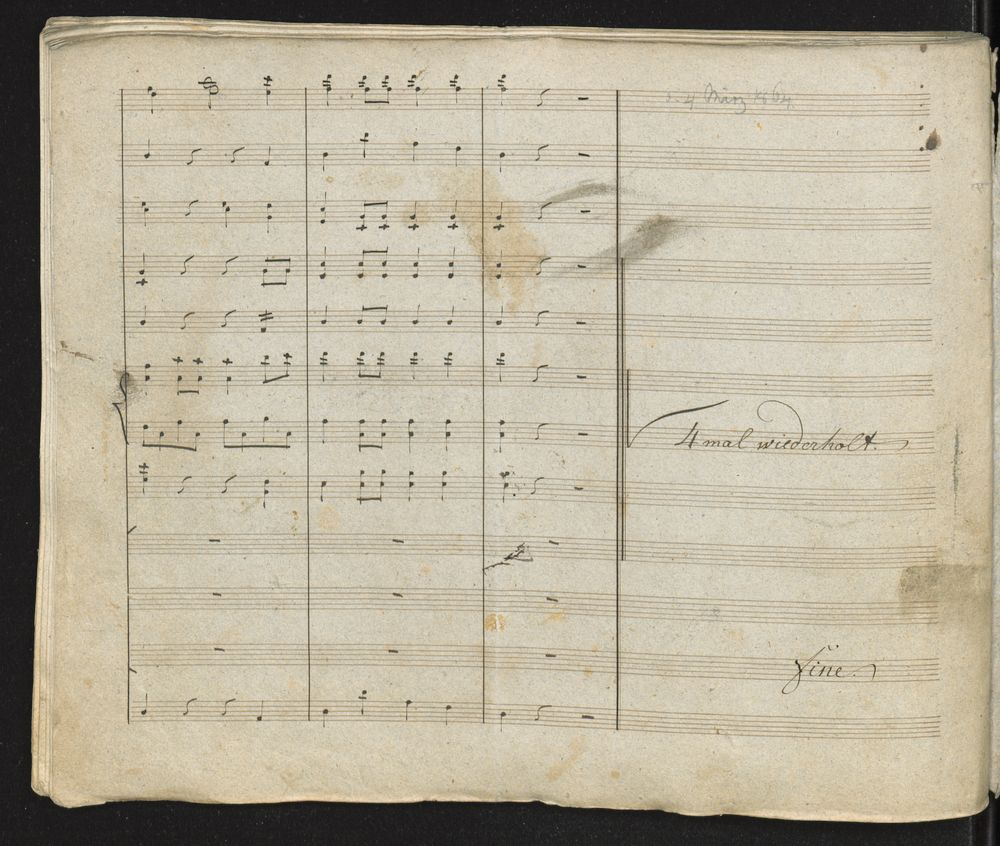 4 März 1864
4 mal wiederholt.
fine.